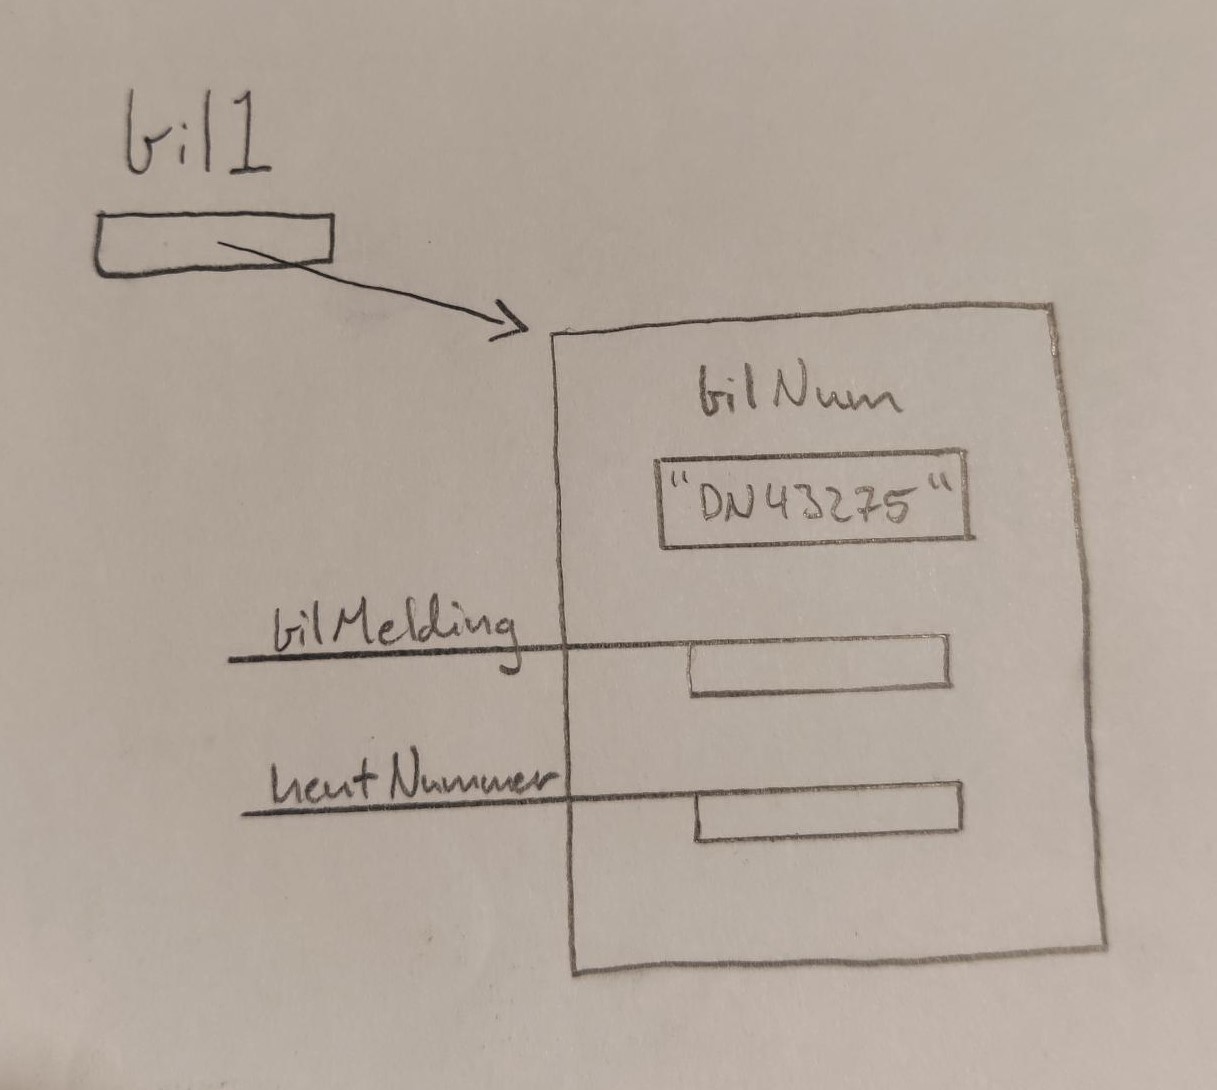 bil1
bilNum
"DN43275"
bilMelding
hentNummer